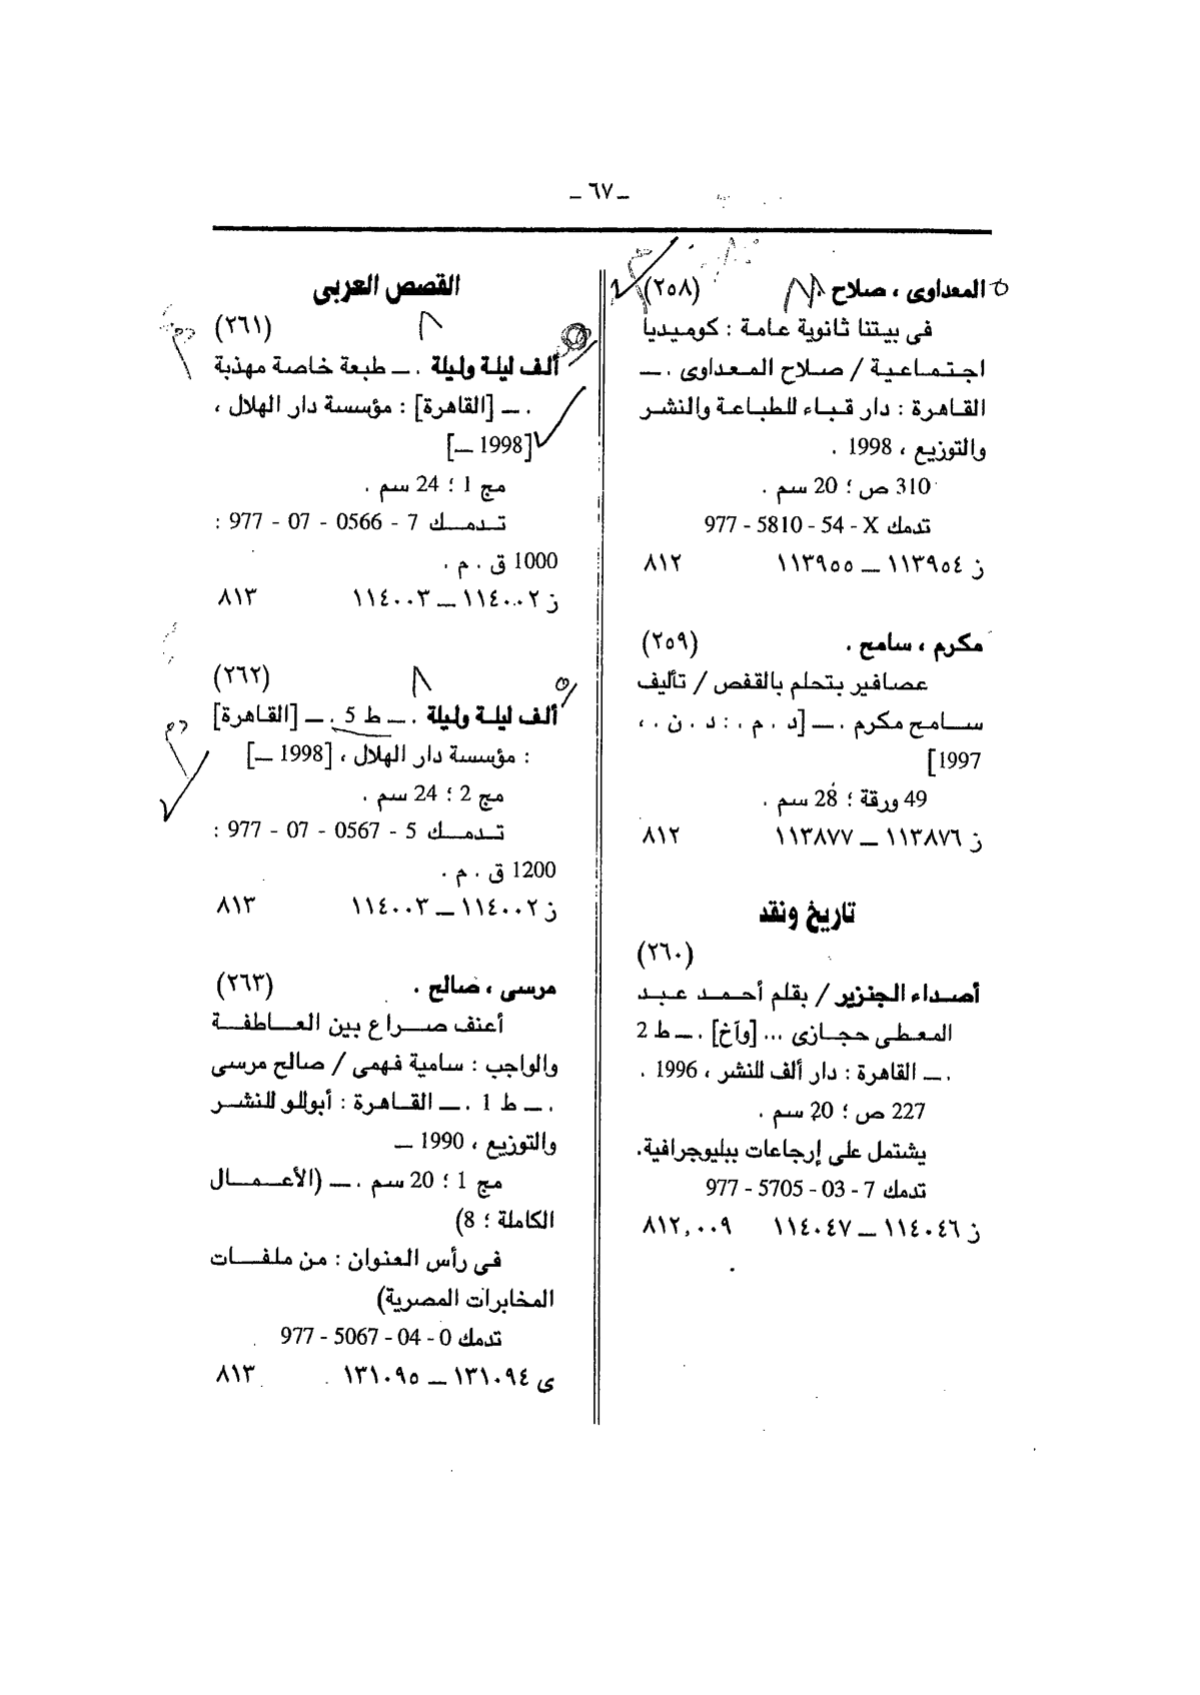 ـ ٦٧ ـ
المعداوى ، صلاح . (٢٥٨)
فى بيتنا ثانوية عامة : كوميديا
اجتماعية / صلاح المعداوى . ــ
القاهرة : دار قباء للطباعة والنشر
والتوزيع ، 1998 .
310 ص ؛ 20 سم .
تدمك 977 - 5810 - 54 - X
ز ١١٣٩٥٤ ــ ١١٣٩٥٥ ٨١٢
مكرم ، سامح . (٢٥٩)
عصافير بتحلم بالقفص / تأليف
سامح مكرم . ــ [د . م . : د . ن . ،
1997]
49 ورقة ؛ 28 سم .
ز ١١٣٨٧٦ ــ ١١٣٨٧٧ ٨١٢
تاريخ ونقد
(٢٦٠)
أصداء الجنزير / بقلم أحمد عبد
المعطى حجازى ... [وآخ] . ــ ط 2
. ــ القاهرة : دار ألف للنشر ، 1996 .
227 ص ؛ 20 سم .
يشتمل على إرجاعات ببليوجرافية.
تدمك 7 - 03 - 5705 - 977
ز ١١٤٠٤٦ ــ ١١٤٠٤٧ ٨١٢,٠٠٩
القصص العربى
(٢٦١)
ألف ليلة وليلة . ــ طبعة خاصة مهذبة
. ــ [القاهرة] : مؤسسة دار الهلال ،
[1998 ــ]
مج 1 ؛ 24 سم .
تدمك 7 - 0566 - 07 - 977 :
1000 ق . م .
ز ١١٤٠٠٢ ــ ١١٤٠٠٣ ٨١٣
(٢٦٢)
ألف ليلة وليلة . ــ ط 5 . ــ [القاهرة]
: مؤسسة دار الهلال ، [1998 ــ]
مج 2 ؛ 24 سم .
تدمك 5 - 0567 - 07 - 977 :
1200 ق . م .
ز ١١٤٠٠٢ ــ ١١٤٠٠٣ ٨١٣
مرسى ، صالح . (٢٦٣)
أعنف صراع بين العاطفة
والواجب : سامية فهمى / صالح مرسى
. ــ ط 1 . ــ القاهرة : أبوللو للنشر
والتوزيع ، 1990 ــ
مج 1 ؛ 20 سم . ــ (الأعمال
الكاملة ؛ 8)
فى رأس العنوان : من ملفات
المخابرات المصرية)
تدمك 0 - 04 - 5067 - 977
ى ١٣١٠٩٤ ــ ١٣١٠٩٥ ٨١٣